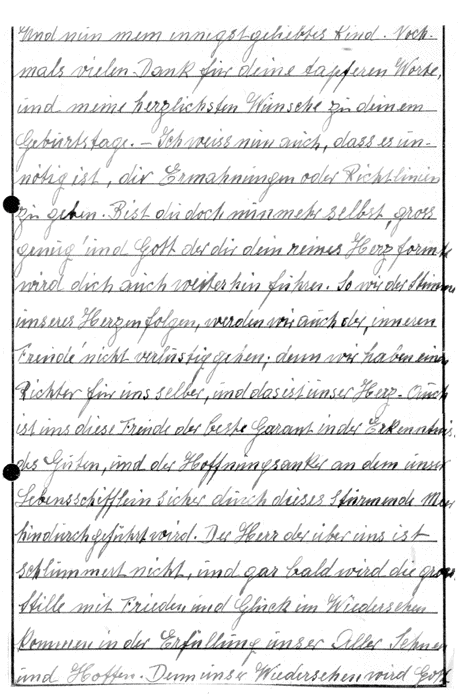 Und nun mein innigst geliebtes Kind. Noch-
mals vielen Dank für deine tapferen Worte,
und meine herzlichsten Wünsche zu deinem
Geburtstage. – Ich weiss nun auch, dass es un-
nötig ist, dir Ermahnungen oder Richtlinien
zu geben. Bist du doch nunmehr selbst, gross
genug' und Gott der dir dein reines Herz formte
wird dich auch weiterhin führen. So wir der Stimme
unseres Herzen folgen, werden wir auch der, inneren
Freude' nicht verlustig gehen; denn wir haben einen
Richter für uns selber, und das ist unser Herz. Auch
ist uns diese Freude der beste Garant in der Erkenntnis
des Guten, und der Hoffnungsanker an dem unser
Lebensschifflein sicher durch dieses stürmende Meer
hindurchgeführt wird. Der Herr der über uns ist
schlummert nicht, und gar bald wird die grosse
Stille mit Frieden und Glück im Wiedersehen
kommen in der Erfüllung unser Aller Sehnen
und Hoffen. Denn unser Wiedersehen wird Gott